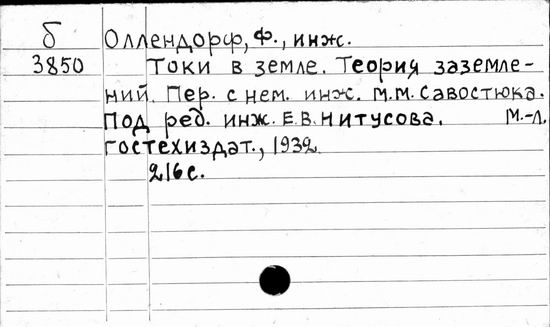 б Оллендорф, Ф., инж.
3850 Токи в земле. Теория заземле-
ний. Пер. с нем. инж. М.М. Савостюка.
Под ред. инж. Е.В. Нитусова. М.-Л.
Гостехиздат., 1932
216с.